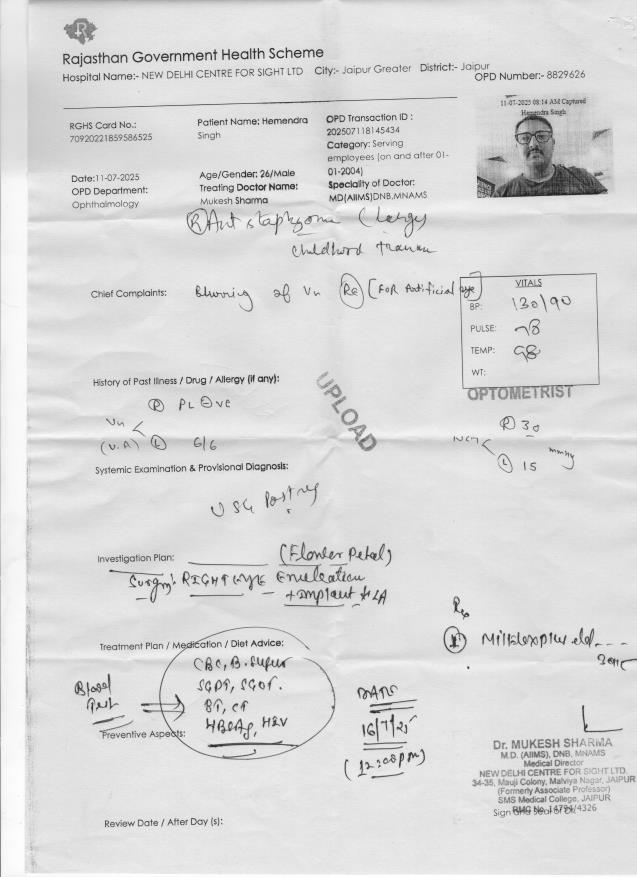 R
Rajasthan Government Health Scheme
Hospital Name:- NEW DELHI CENTRE FOR SIGHT LTD City:- Jaipur Greater District:- Jaipur
OPD Number:- 8829626
11-07-2025 08:14 AM Captured
Hemendra Singh
RGHS Card No.:
70920221859586525
Patient Name: Hemendra
Singh
OPD Transaction ID :
202507118145434
Category: Serving
employees (on and after 01-
01-2004)
Date:11-07-2025
OPD Department:
Ophthalmology
Age/Gender: 26/Male
Treating Doctor Name:
Mukesh Sharma
Speciality of Doctor:
MD(AIIMS)DNB,MNAMS
(R) Ant staphyoma (Large)
childhood trauma
Chief Complaints: Blurring of Vn (RE) [FOR Artificial eye]
VITALS
BP: 130/90
PULSE: 78
TEMP: 98
WT:
OPTOMETRIST
History of Past Illness / Drug / Allergy (if any):
UPLOAD
(R) PL ⊖ve
Vn
(U.A) (L) 6/6
(R) 30
NCT
(L) 15 mmHg
Systemic Examination & Provisional Diagnosis:
USG
Investigation Plan: (Flower Petal)
Surgery: RIGHT EYE Enucleation
+ Implant + LA
Treatment Plan / Medication / Diet Advice:
CBC, B. Sugar
SGPT, SGOT.
BT, CT
HBsAg, HIV
Blood
Test
Preventive Aspects:
DATE
16/7/25
(12:00pm)
Dr. MUKESH SHARMA
M.D. (AIIMS), DNB, MNAMS
Medical Director
NEW DELHI CENTRE FOR SIGHT LTD.
34-35, Mauji Colony, Malviya Nagar, JAIPUR
(Formerly Associate Professor)
SMS Medical College, JAIPUR
RMC No. 14794/4326
Review Date / After Day (s):